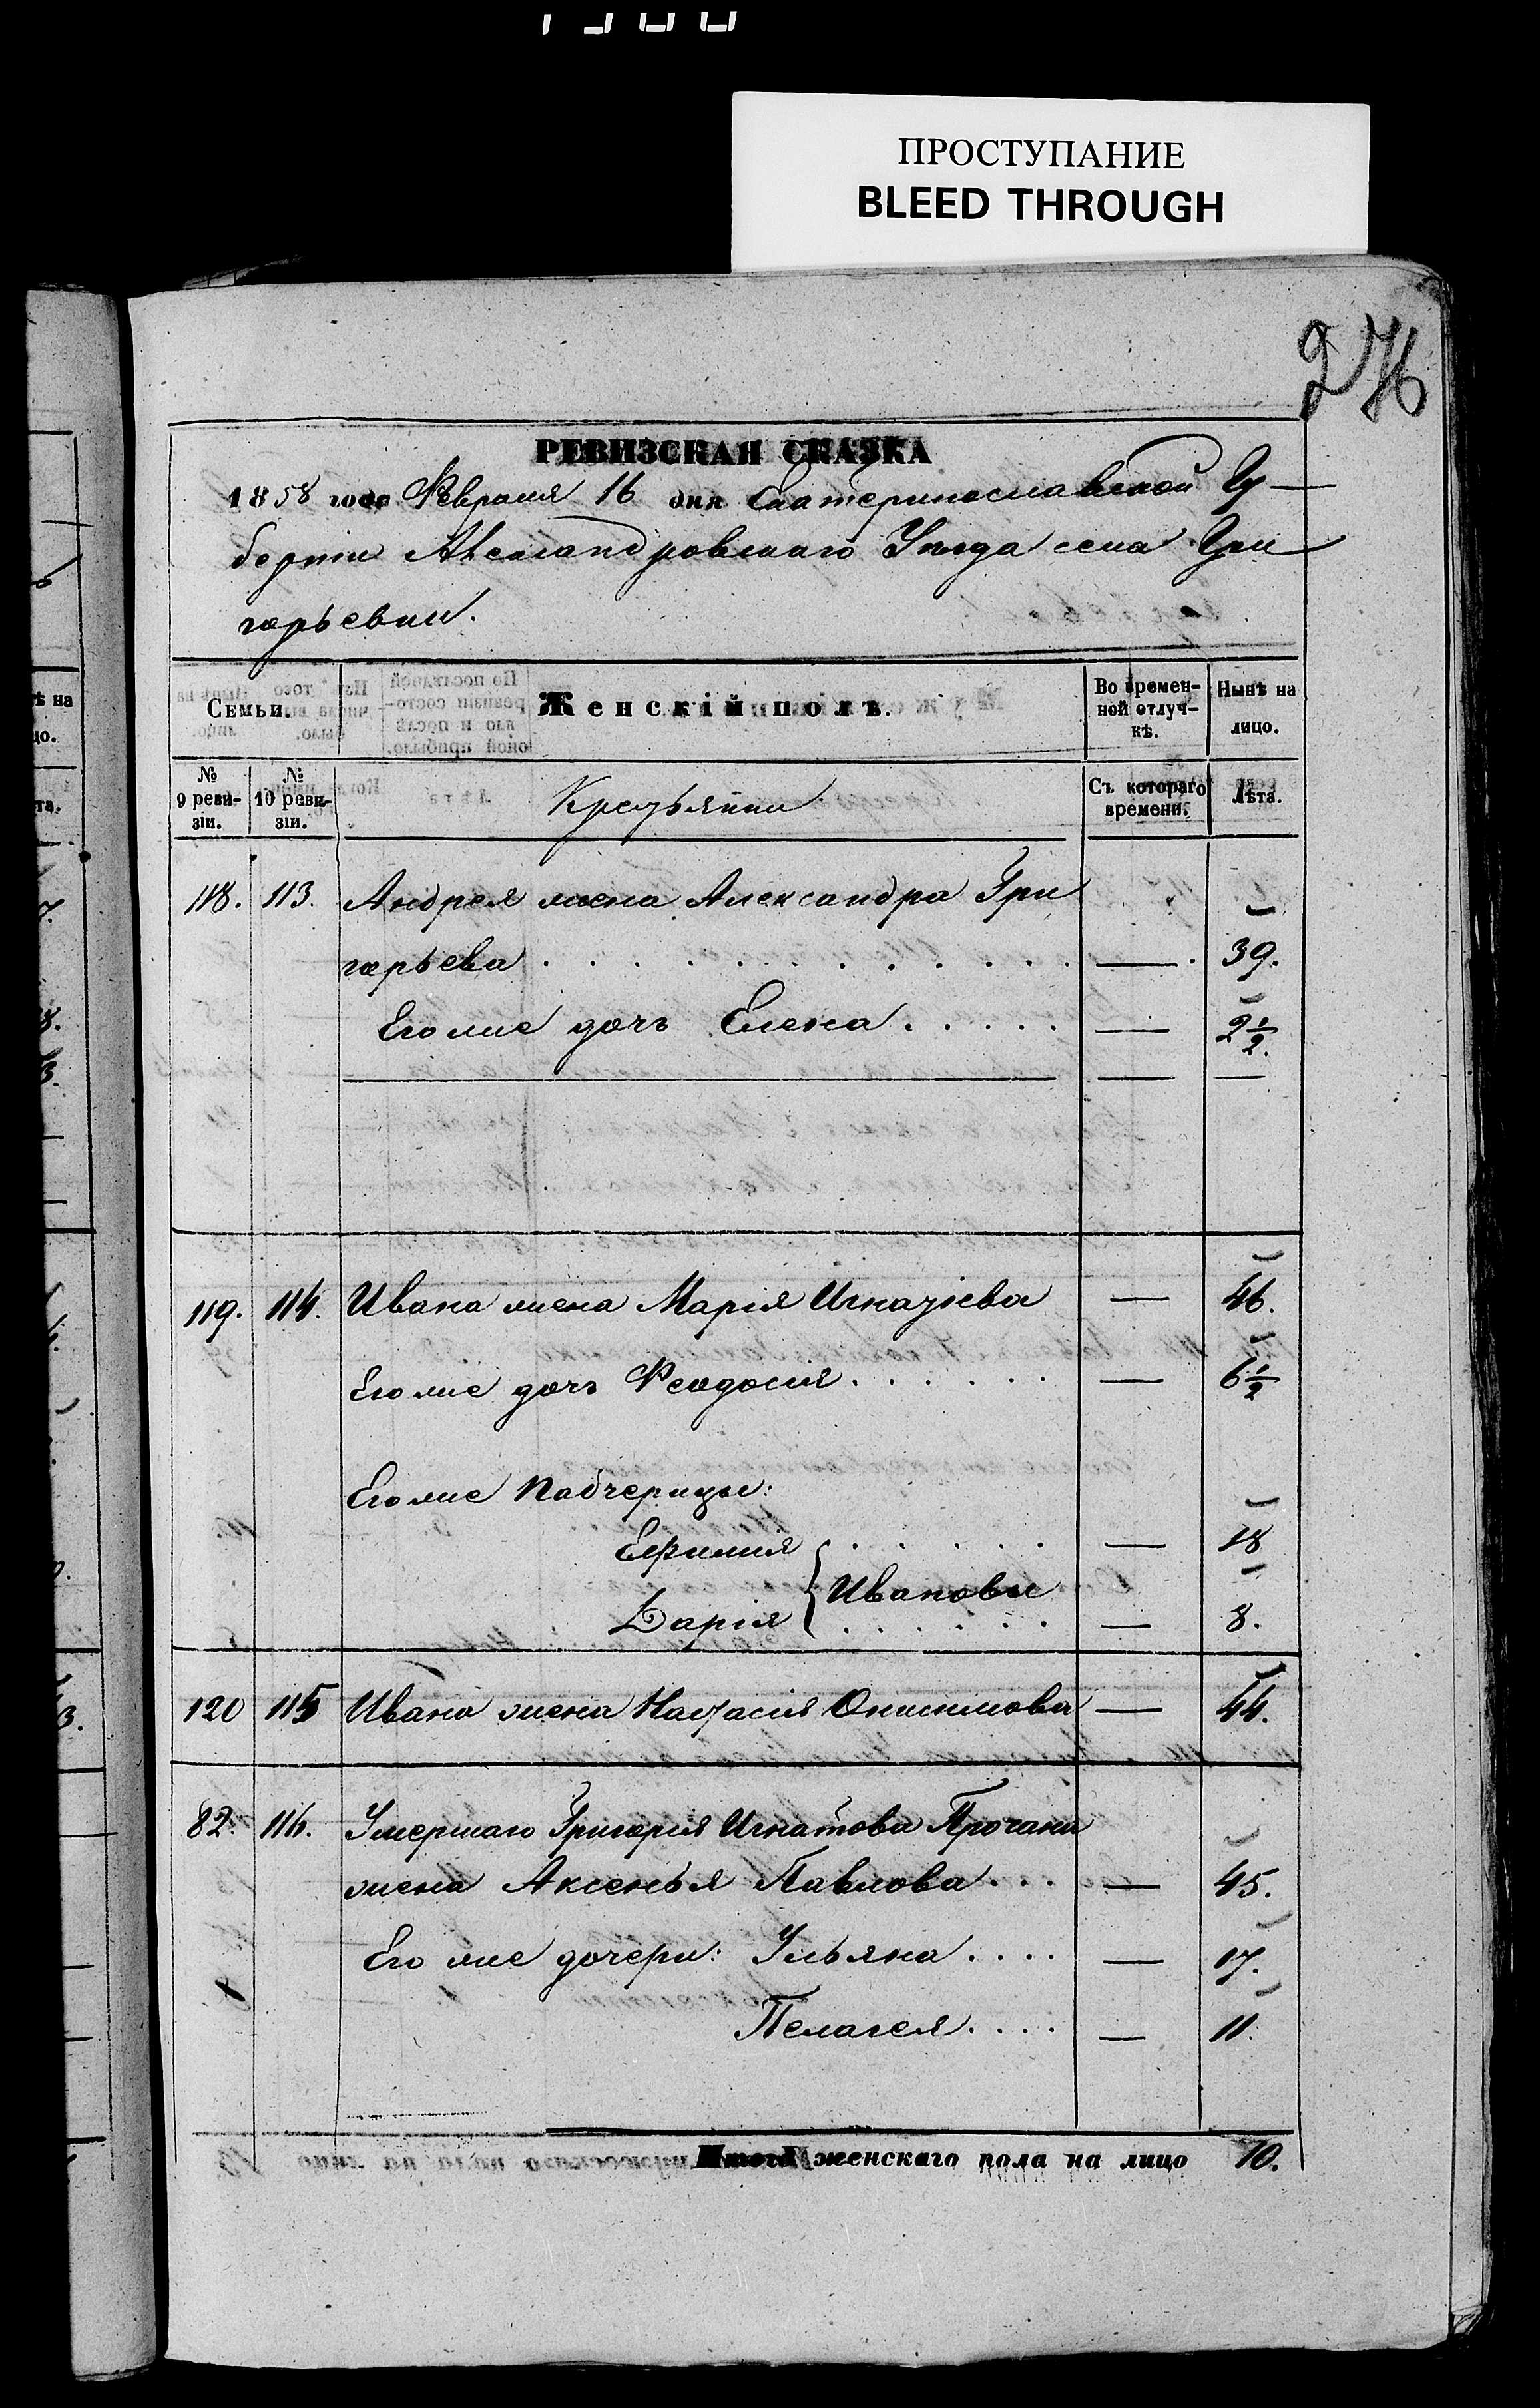 ПРОСТУПАНИЕ
BLEED THROUGH
276
РЕВИЗСКАЯ СКАЗКА
1858 года Февраля 16 дня Екатеринославской Гу
берніи Александровскаго Уѣзда села Гри
горьевки.
Семьи. Женскій полъ. Во времен-ной отлуч-кѣ. Нынѣ на лицо.
№ 9 реви-зіи. № 10 реви-зіи. Крестьянки Съ котораго времени. Лѣта.
118. 113. Андрея жена Александра Гри
горьева . . . — 39.
Его же дочь Елена . . . — 2 1/2.
119. 114. Ивана жена Марія Игнатіева — 46.
Его же дочь Феодосія . . . — 6 1/2
Его же Падчерицы:
Ефимия . . . — 18
Ивановы
Дарія . . . — 8.
120 115 Ивана жена Настасія Онисимова — 44.
82. 116. Умершаго Григорія Игнатова Прочана
жена Аксенья Павлова . . . — 45.
Его же дочери: Ульяна . . . . — 17.
Пелагея . . . . — 11.
Итого женскаго пола на лицо 10.